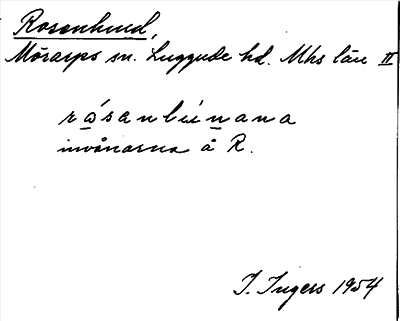 Rosenlund,
Mörarps sn. Luggude hd. Mhs län II
rɷ́sanlúnana
invånarna å R.
I. Ingers 1954